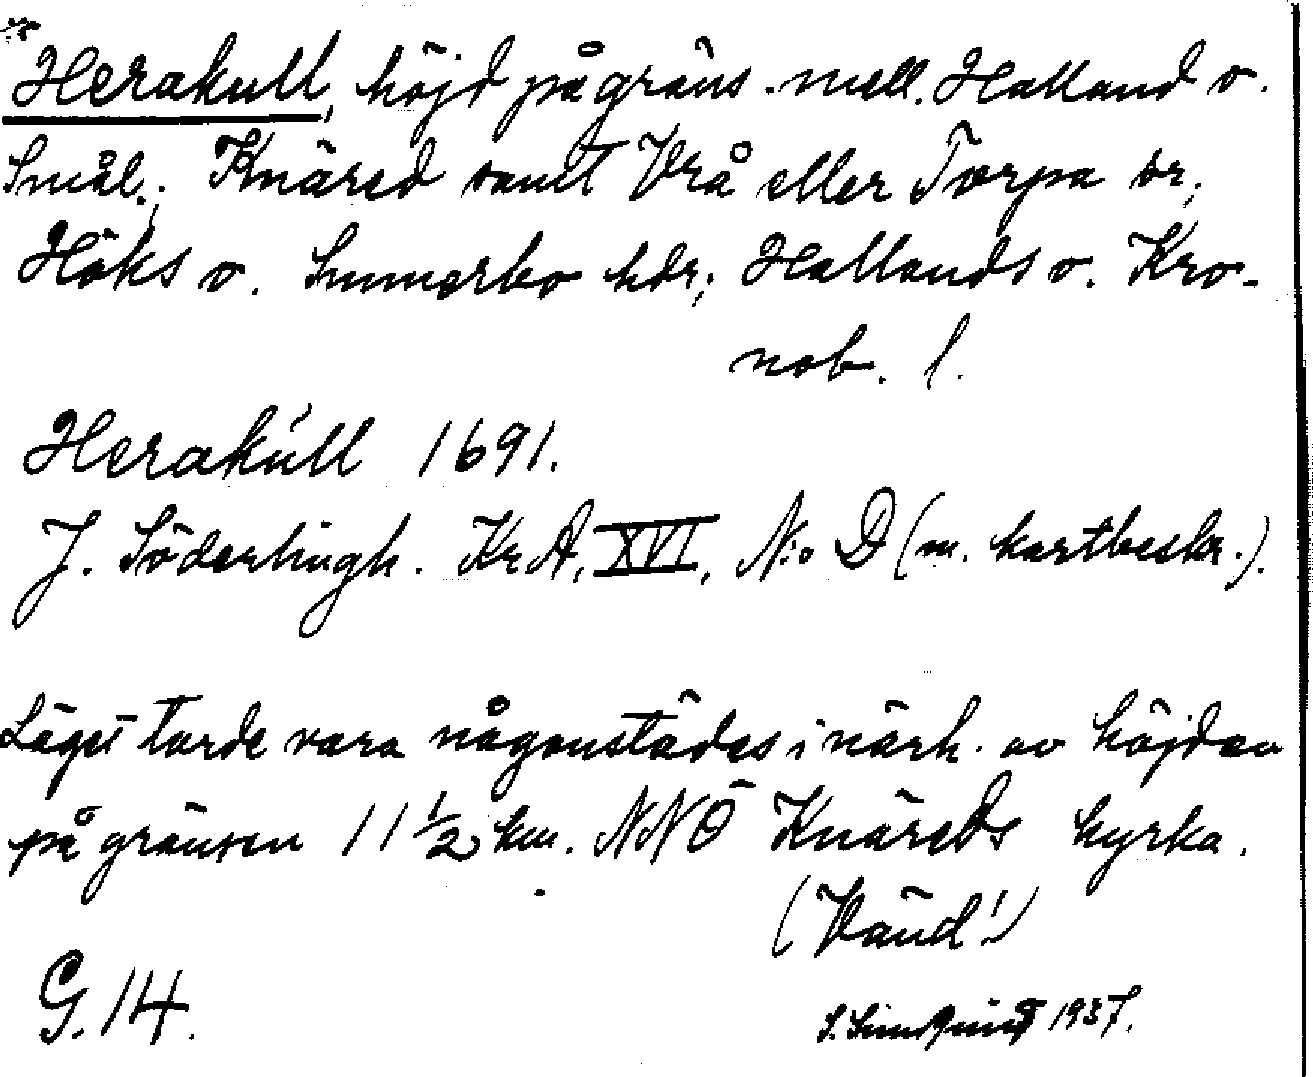 * Herakull, höjd på gräns. mell. Halland o.
Smål.; Knäred samt Vrå eller Torpa sr;
Höks o. Sunnerbo hdr; Hallands o. Kro-
nob. l.
Herakull 1691.
J. Söderlingh. KrA, XVI, N:o D (m. kartbeskr.).
Läget torde vara någonstädes i närh. av höjden
på gränsen 11 ½ km. NNÖ Knäreds kyrka.
(Vänd!)
G. 14.
1937.